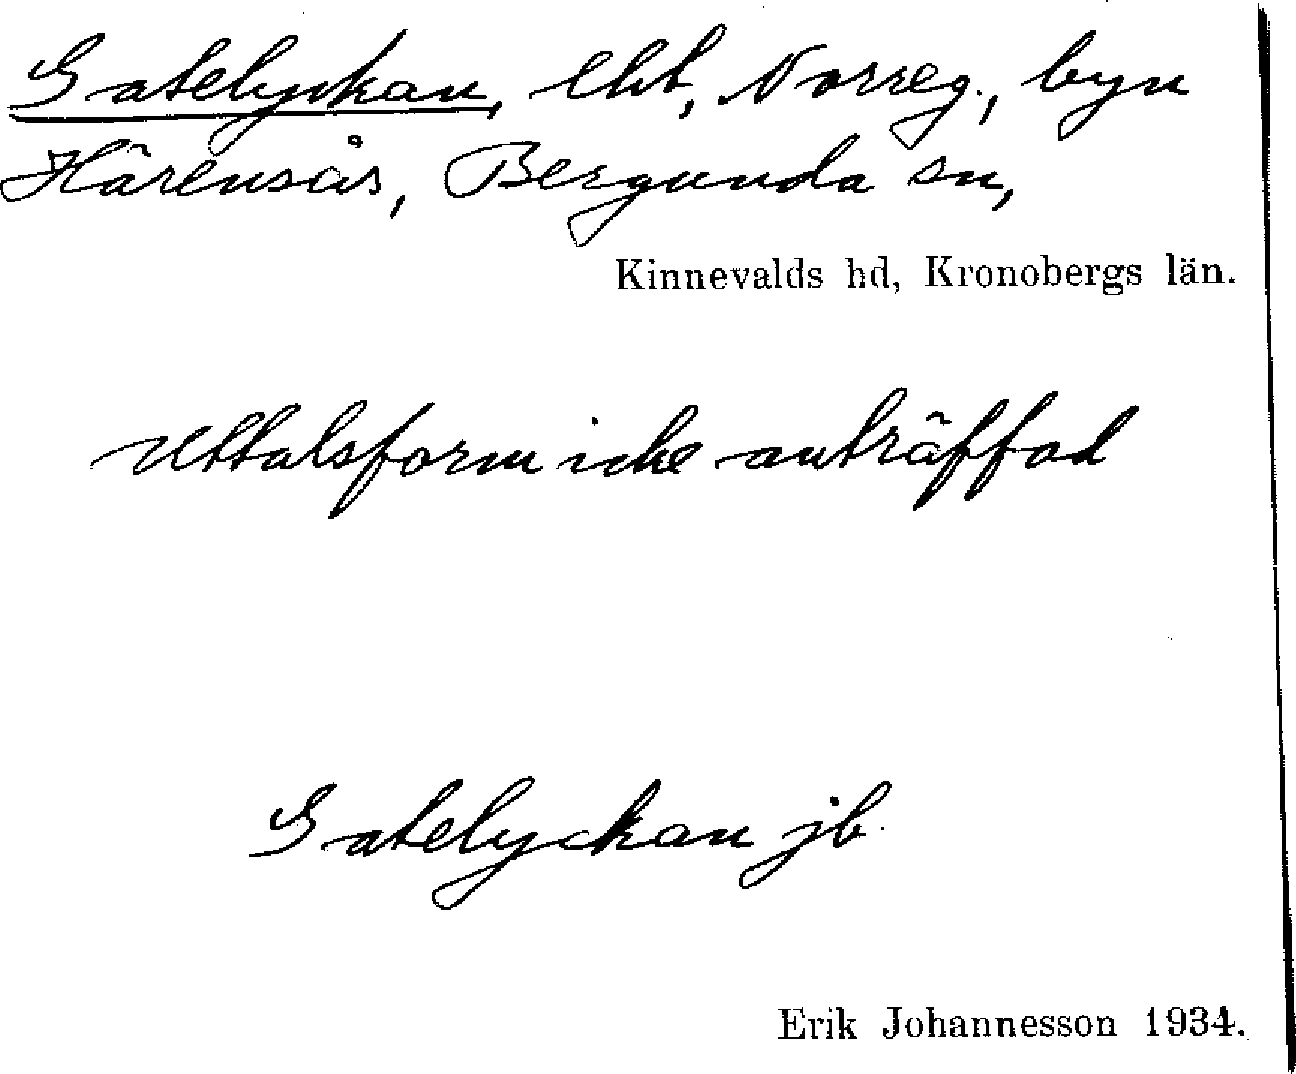 Gatelyckan, lht, Norreg., byn
Härensås, Bergunda sn,
Kinnevalds hd, Kronobergs län.
Uttalsform icke anträffad
Gatelyckan jb
Erik Johannesson 1934.